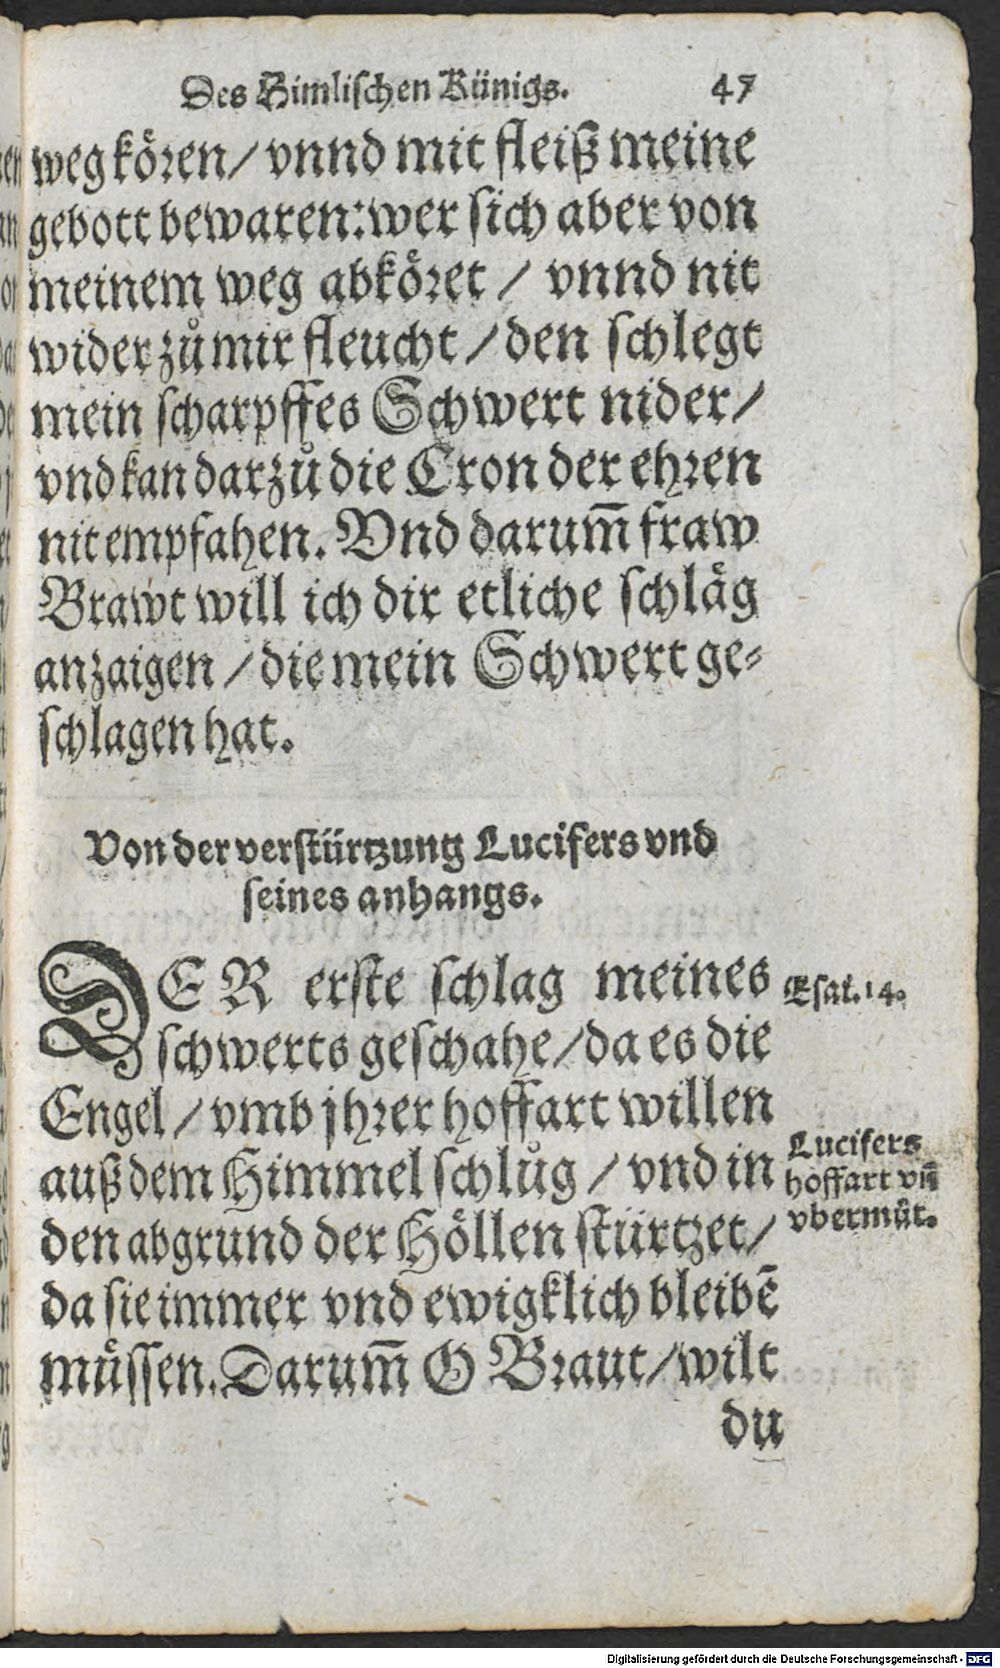 Des Himlischen Künigs. 47
weg kören/ vnnd mit fleiß meine
gebott bewaren: wer sich aber von
meinem weg abköret / vnnd nit
wider zů mir fleucht / den schlegt
mein scharpffes Schwert nider/
vnd kan darzů die Cron der ehren
nit empfahen. Vnd darum̃ fraw
Brawt will ich dir etliche schläg
anzaigen / die mein Schwert ge-
schlagen hat.
Von der verstürtzung Lucifers vnd
seines anhangs.
DER erste schlag meines
schwerts geschahe / da es die
Engel / vmb jhrer hoffart willen
auß dem Himmel schlůg / vnd in
den abgrund der Höllen stürtzet/
da sie immer vnd ewigklich bleibẽ
müssen. Darum̃ O Braut/ wilt
du
Esai. 14.
Lucifers
hoffart vñ
vbermůt.
Digitalisierung gefördert durch die Deutsche Forschungsgemeinschaft - DFG